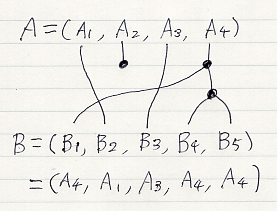 A=(A1, A2, A3, A4)
B=(B1, B2, B3, B4, B5)
=(A4, A1, A3, A4, A4)